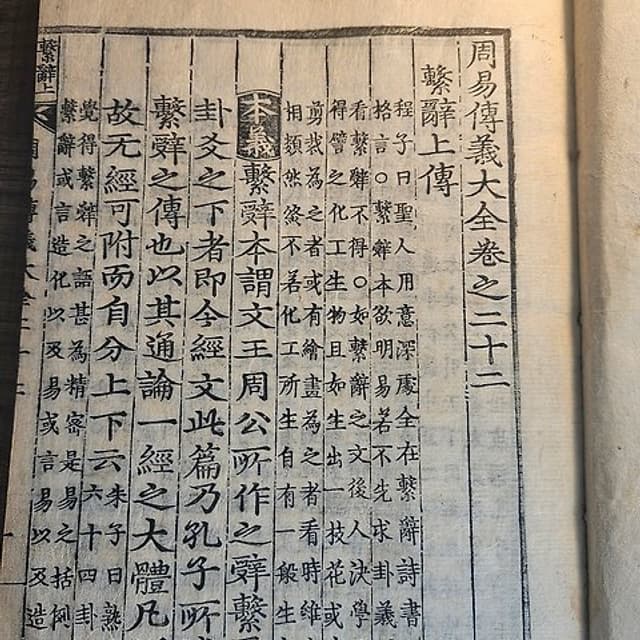 周易傳義大全卷之二十二
繫辭上傳
程子曰聖人用意深處全在繫辭詩書
格言○繫辭本欲明易若不先求卦義
看繫辭不得○如繫辭之文後人決學
得譬之化工生物且如生出一技花或
剪裁為之者或有繪畫為之者看時雖
相類然終不若化工所生自有一般生
本義繫辭本謂文王周公所作之辭繫
卦爻之下者即今經文此篇乃孔子所
繫辭之傳也以其通論一經之大體凡
故无經可附而自分上下云朱子曰熟
六十四卦
覺得繫辭之語甚為精密是易之括例
繫辭或言造化以及易或言易以及造
周易傳義大全二十二
繫辭上